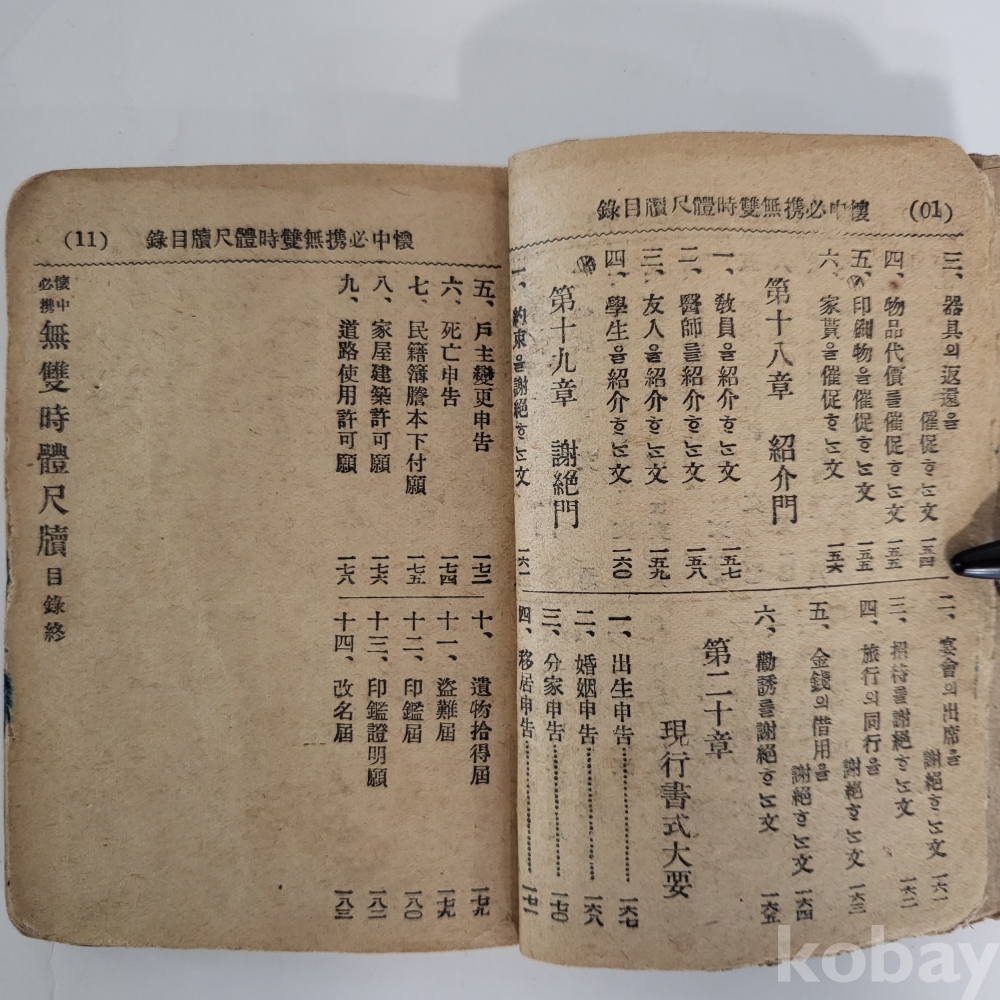 (01) 懷中必携無雙時體尺牘目錄
三、器具의返還을
催促ᄒᆞᄂᆞᆫ文 一五四
四、物品代價를催促ᄒᆞᄂᆞᆫ文 一五五
五、印刷物을催促ᄒᆞᄂᆞᆫ文 一五五
六、家貰을催促ᄒᆞᄂᆞᆫ文 一五六
第十八章 紹介門
一、敎員을紹介ᄒᆞᄂᆞᆫ文 一五七
二、醫師를紹介ᄒᆞᄂᆞᆫ文 一五八
三、友人을紹介ᄒᆞᄂᆞᆫ文 一五九
四、學生을紹介ᄒᆞᄂᆞᆫ文 一六〇
第十九章 謝絕門
一、約束을謝絕ᄒᆞᄂᆞᆫ文 一六一
二、宴會의出席을
謝絕ᄒᆞᄂᆞᆫ文 一六一
三、招待를謝絕ᄒᆞᄂᆞᆫ文 一六二
四、旅行의同行을
謝絕ᄒᆞᄂᆞᆫ文 一六三
五、金錢의借用을
謝絕ᄒᆞᄂᆞᆫ文 一六四
六、勸誘를謝絕ᄒᆞᄂᆞᆫ文 一六五
第二十章
現行書式大要
一、出生申告 一六七
二、婚姻申告 一六八
三、分家申告 一七〇
四、移居申告 一七一
懷中必携無雙時體尺牘目錄 (11)
五、戶主變更申告 一七三
六、死亡申告 一七四
七、民籍簿謄本下付願 一七五
八、家屋建築許可願 一七六
九、道路使用許可願 一七八
十、遺物拾得屆 一七九
十一、盜難屆 一七九
十二、印鑑屆 一八〇
十三、印鑑證明願 一八二
十四、改名屆 一八三
懷中必携 無雙時體尺牘 目錄終
kobay